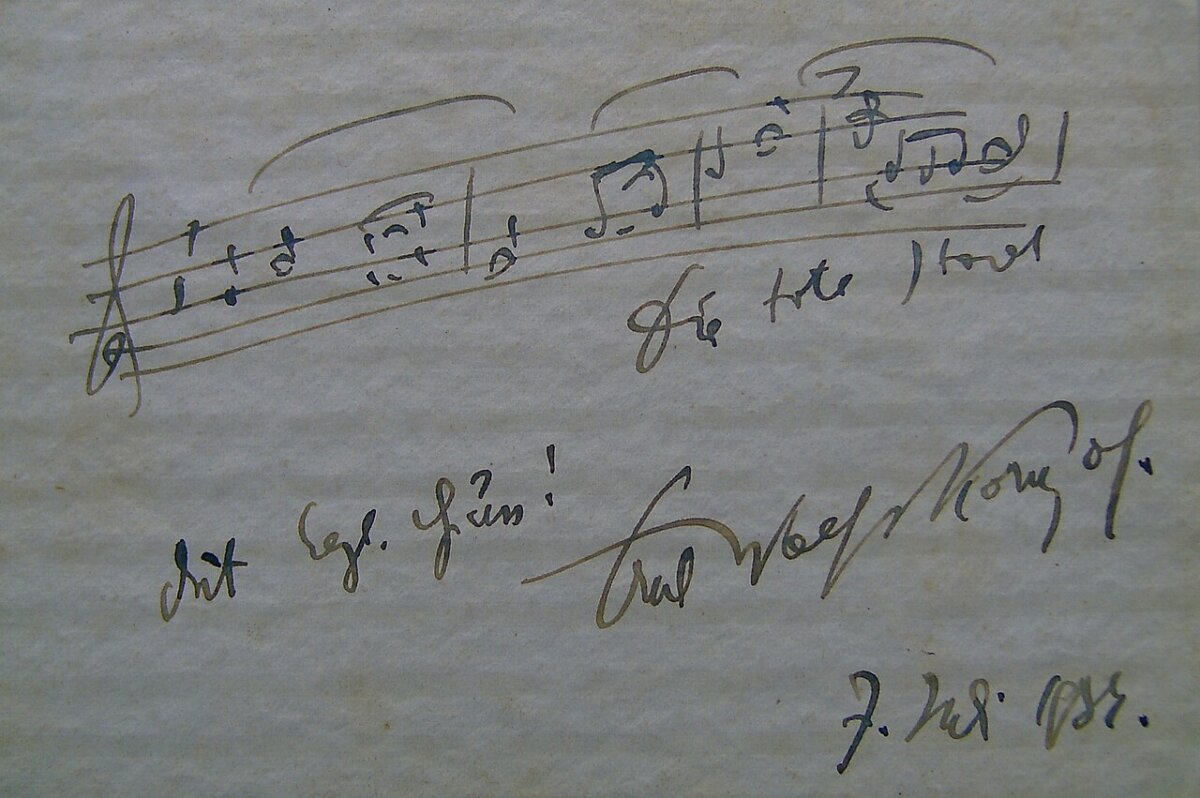 Die tote Stadt
Mit herzl. Gruss! Erich Wolfg. Korngold.
7. Juli